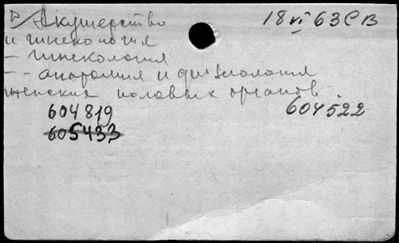 Акушерство 18 VI 63 СВ
и гинекология
- гинекология
-- анатомия и физиология
женских половых органов.
604819 604522
605433